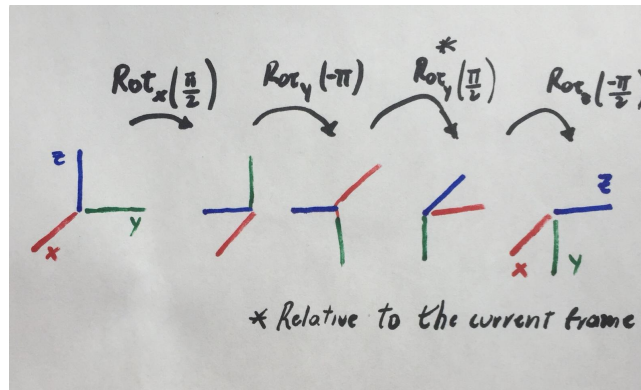 Rot_x(π/2) Rot_y(-π) Rot_y*(π/2) Rot_z(-π/2)
z z
y
x x y
* Relative to the current frame